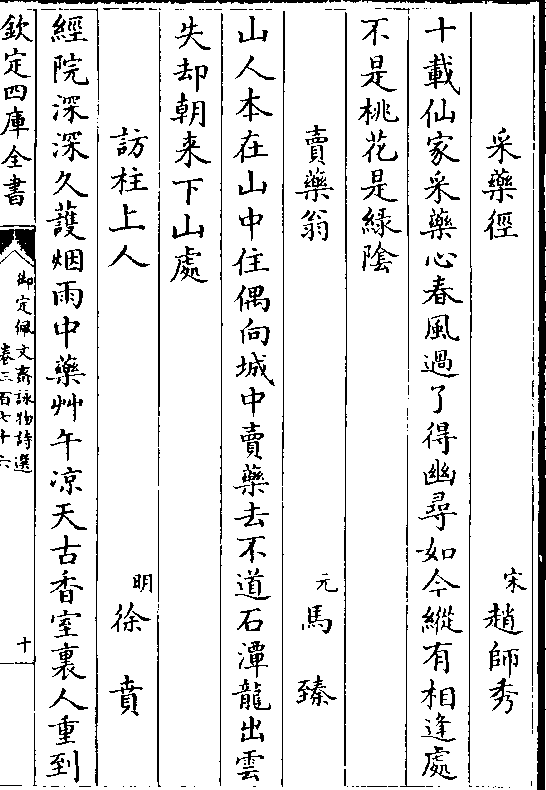 采藥徑 宋 趙師秀
十載仙家采藥心春風過了得幽尋如今縱有相逢處
不是桃花是綠陰
賣藥翁 元 馬臻
山人本在山中住偶向城中賣藥去不道石潭龍出雲
失却朝来下山處
訪柱上人 明 徐賁
經院深深久護烟雨中藥艸午凉天古香室裏人重到
欽定四庫全書
御定佩文齋詠物詩選
卷三百七十六
十